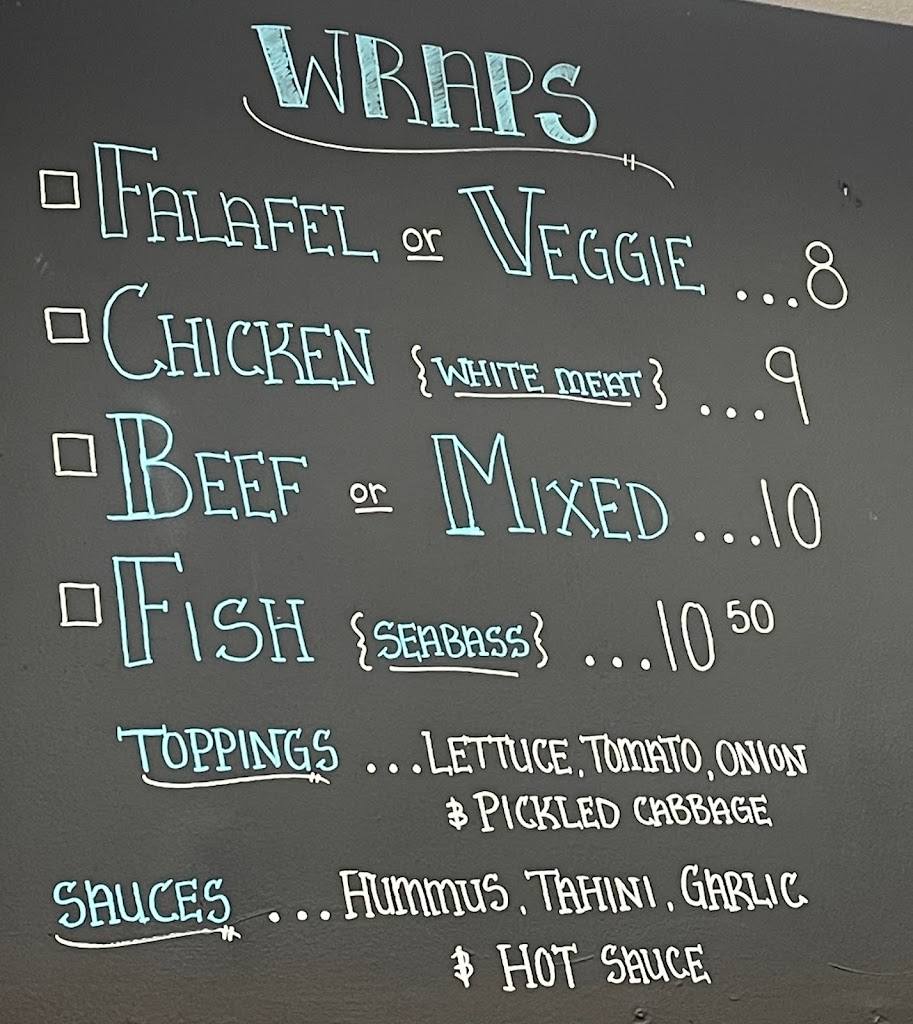 WRAPS
FALAFEL or VEGGIE ...8
CHICKEN {WHITE MEAT} ...9
BEEF or MIXED ...10
FISH {SEABASS} ...10 50
TOPPINGS ...LETTUCE, TOMATO, ONION
& PICKLED CABBAGE
SAUCES ...HUMMUS, TAHINI, GARLIC
& HOT SAUCE